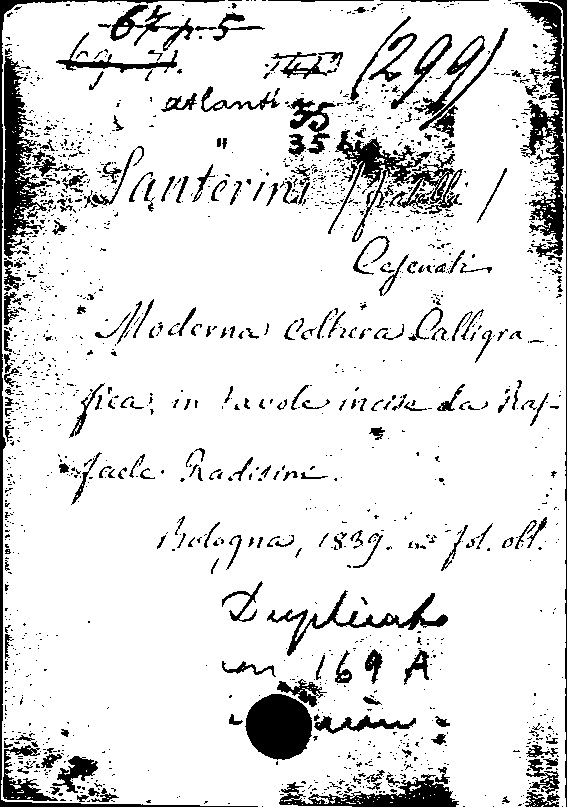 67 p. 5
69. 71.
(299)
atlanti
35
35
Santerini (fratelli)
Cesenati
Moderna coltura Calligra-
fica, in tavole incise da Raf-
faele Radisini.
Bologna, 1839. in fol. obl.
Duplicato
in 169 A